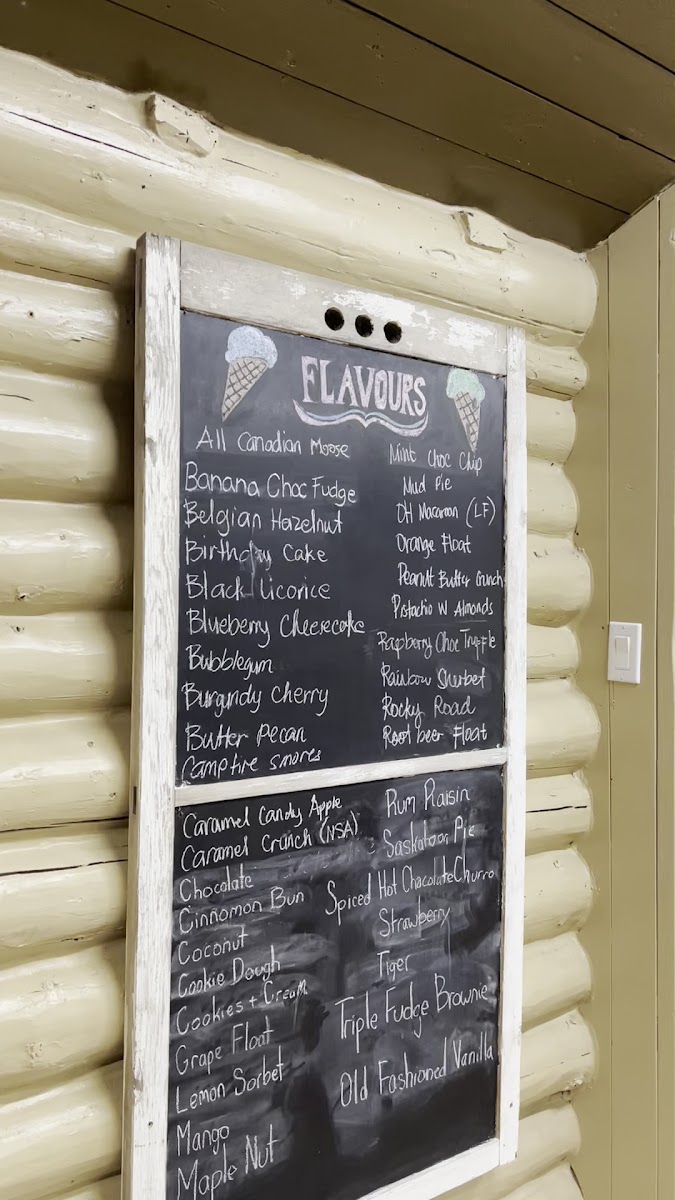 FLAVOURS
All Canadian Moose
Banana Choc Fudge
Belgian Hazelnut
Birthday Cake
Black Licorice
Blueberry Cheesecake
Bubblegum
Burgundy Cherry
Butter Pecan
Campfire smores
Mint Choc Chip
Mud Pie
OH Macaroon (LF)
Orange Float
Peanut Butter Crunch
Pistachio W Almonds
Raspberry Choc Truffle
Rainbow Sherbet
Rocky Road
Root beer Float
Caramel Candy Apple
Caramel Crunch (NSA)
Chocolate
Cinnomon Bun
Coconut
Cookie Dough
Cookies + Cream
Grape Float
Lemon Sorbet
Mango
Maple Nut
Rum Raisin
Saskatoon Pie
Spiced Hot Chocolate Churro
Strawberry
Tiger
Triple Fudge Brownie
Old Fashioned Vanilla